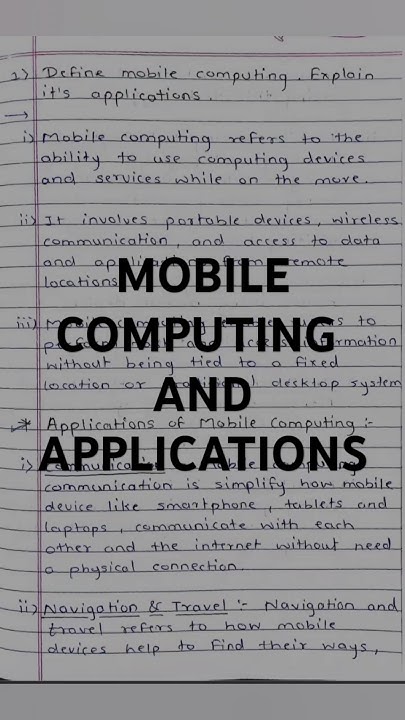 1) Define mobile computing. Explain
it's applications.
i) Mobile computing refers to the
ability to use computing devices
and services while on the move.
ii) It involves portable devices, wireless
communication, and access to data
and from remote
locations
MOBILE
COMPUTING
AND
APPLICATIONS
iii) to
without being tied to a fixed
location or desktop system
* Applications of Mobile Computing :-
i)
communication is simplify how mobile
device like smartphone, tablets and
laptops, communicate with each
other and the internet without need
a physical connection.
ii) Navigation & Travel :- Navigation and
travel refers to how mobile
devices help to find their ways,